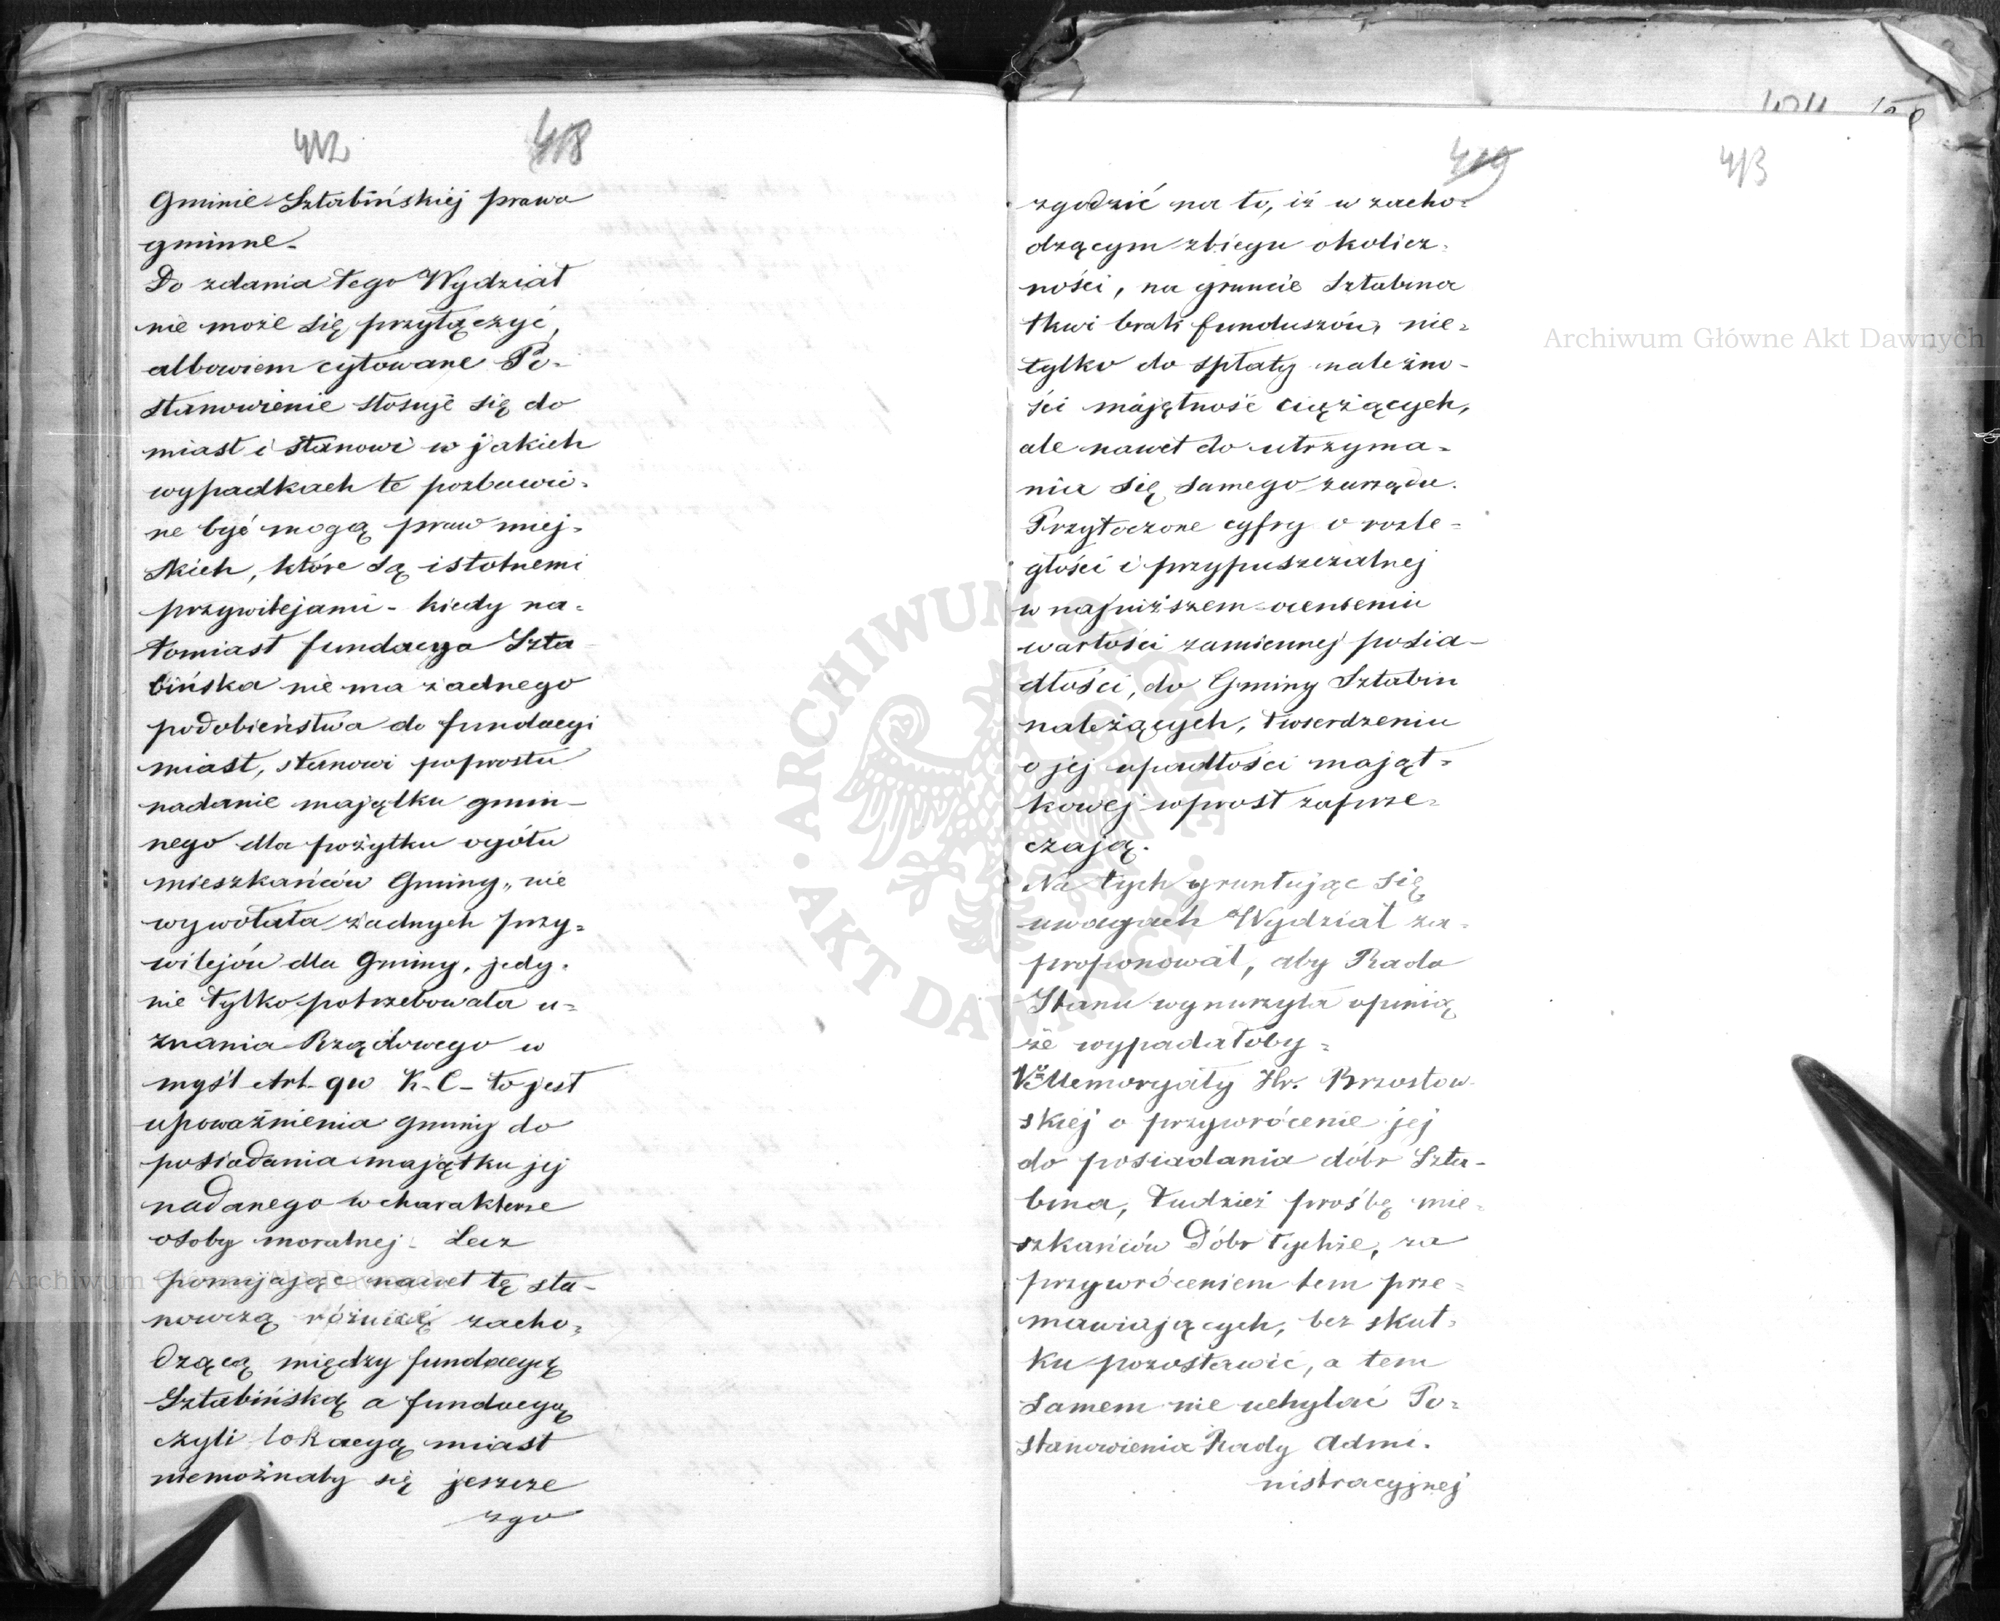 412 418
Gminie Sztabińskiéj prawa
gminne.
Do zdania tego Wydział
nie może się przyłączyć,
albowiem cytowane Po-
stanowienie stosuje się do
miast i stanowi w jakich
wypadkach te pozbawio-
ne być mogą praw miej-
skich, które są istotnemi
przywilejami - kiedy na-
tomiast fundacya Szta-
bińska nie ma żadnego
podobieństwa do fundacyi
miast, stanowi poprostu
nadanie majątku gmin-
nego dla pożytku ogółu
mieszkańców Gminy, nie
wywołała żadnych przy-
wilejów dla Gminy, jedy-
nie tylko potrzebowała u-
znania Rządowego w
myśl Art. 910 K. C. to jest
upoważnienia gminy do
posiadania majątku jej
nadanego w charakterze
osoby moralnej. Lecz
pomijając nawet tę sta-
nowczą różnicę zacho-
dzącą między fundacyą
Sztabińską a fundacyą
czyli lokacyą miast
niemożnaby się jeszcze
zgo
419 413
zgodzić na to, iż w zacho-
dzącym zbiegu okolicz-
ności, na gruncie Sztabina
tkwi brak funduszów, nie-
tylko do spłaty należno-
ści majętność ciążących,
ale nawet do utrzyma-
nia się samego zarządu.
Przytoczone cyfry o rozle-
głości i przypuszczalnej
w najniższem ocenieniu
wartości zamiennej posia-
dłości, do Gminy Sztabin
należących, twierdzeniu
o jej upadłości mająt-
kowej wprost zaprze-
czają.
Na tych gruntując się
uwagach Wydział za-
proponował, aby Rada
Stanu wynurzyła opinią
że wypadałoby
Memoryały Hr. Brzostow-
skiej o przywrócenie jej
do posiadania dóbr Szta-
bina, tudzież prośbę mie-
szkańców Dóbr tychże, za
przywróceniem tem prze-
mawiających, bez skut-
ku pozostawić, a tem
samem nie uchylać Po-
stanowienia Rady Admi-
nistracyjnej
Archiwum Główne Akt Dawnych
ARCHIWUM GŁÓWNE AKT DAWNYCH
Archiwum Główne Akt Dawnych